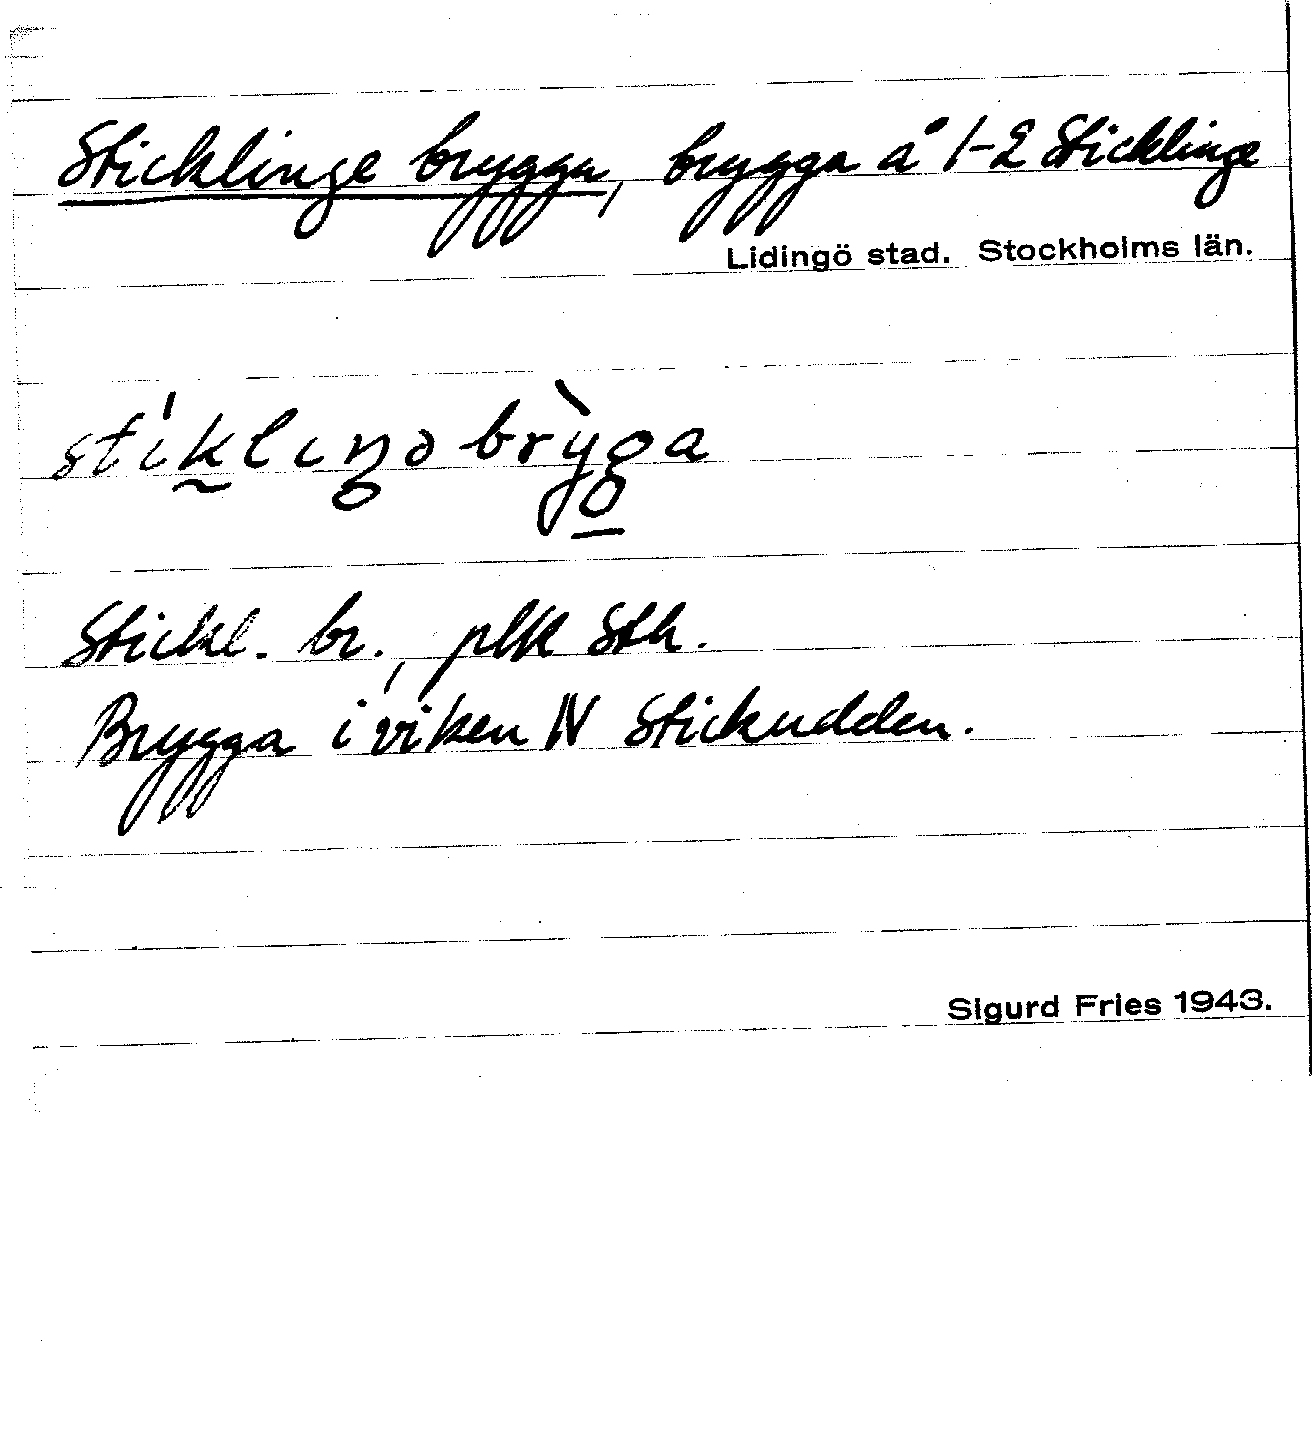 Sticklinge brygga, brygga å 1-2 Sticklinge
Lidingö stad. Stockholms län.
stiklıŋəbrỳga
Stickl. br., plk Sth.
Brygga i viken N Stickudden.
Sigurd Fries 1943.